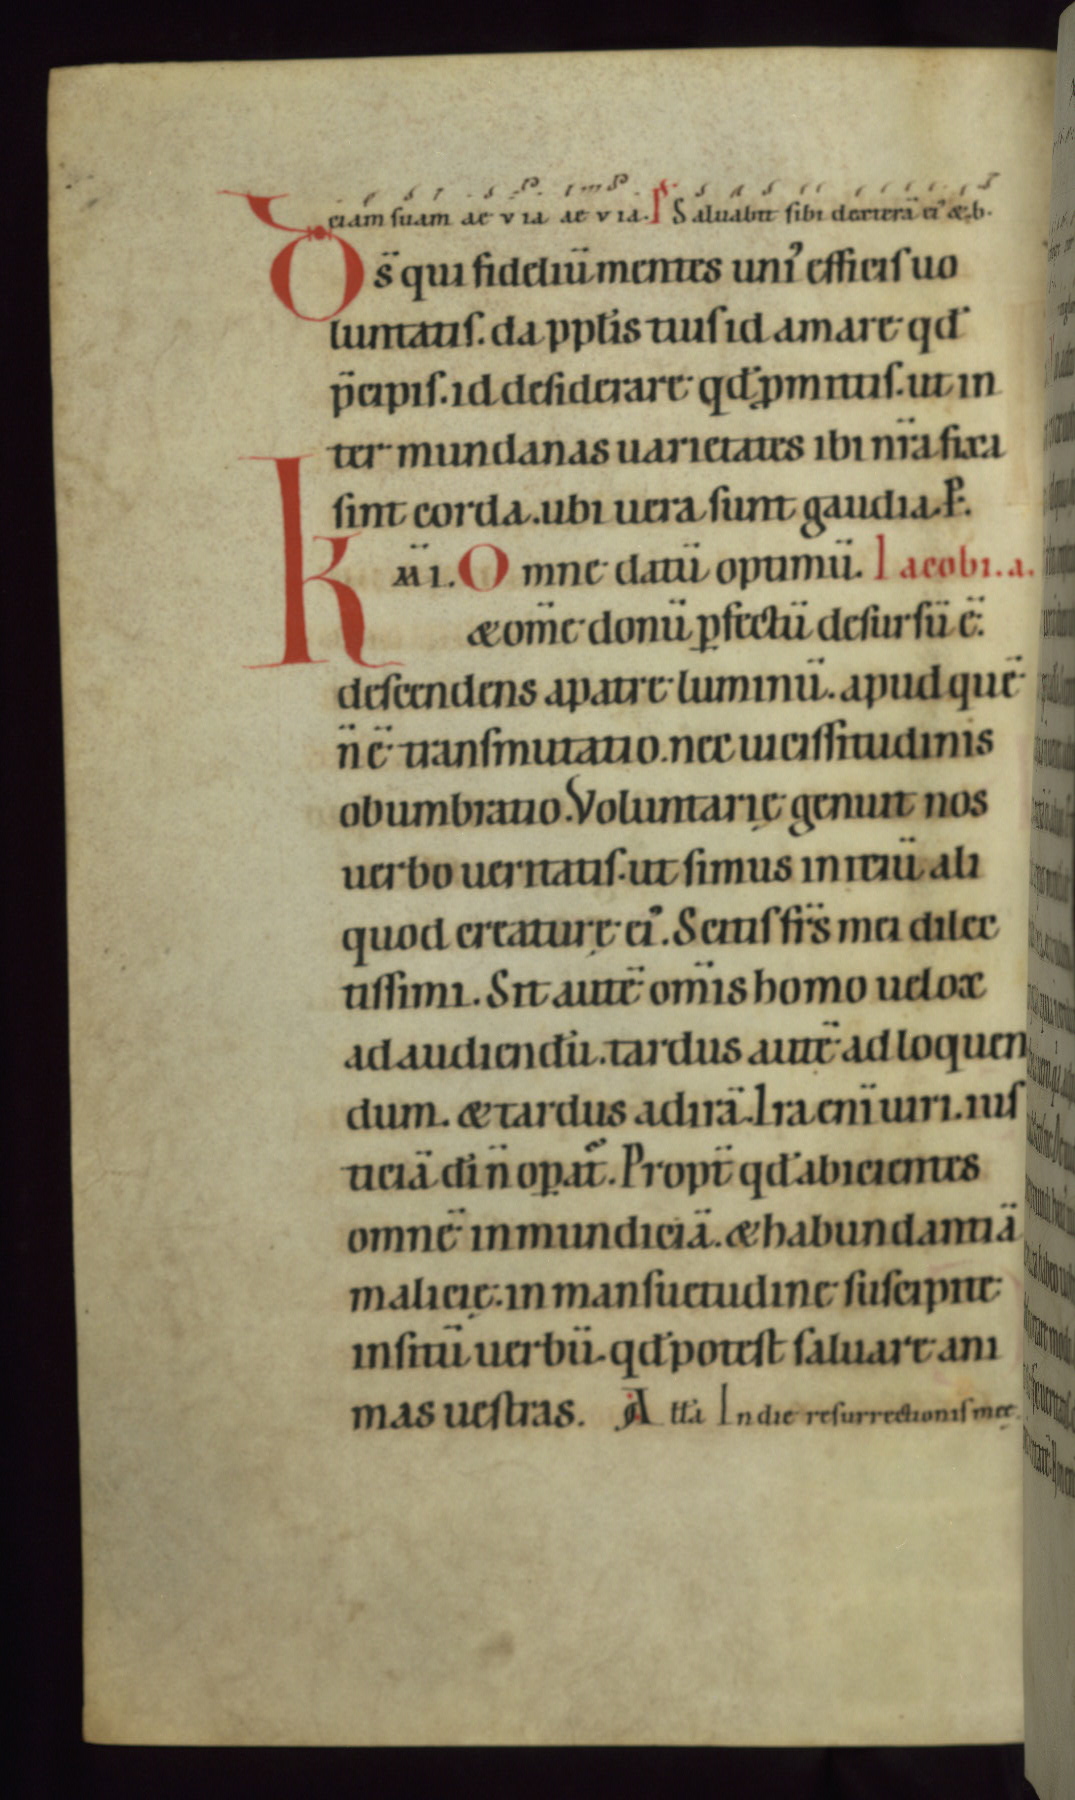 ciam suam ae v ia ae v ia. ps Saluabit sibi dextera ei' & b.
Ds̄ qui fideliū mentes uni' efficis uo
luntatis. da pplis tuis id amare qđ
p̄cipis. id desiderare qđ pmittis. ut in
ter mundanas uarietates ibi nr̄a fixa
sint corda. ubi uera sunt gaudia. P.
Km̄i. Omne datū optimū. Iacobi. a.
& om̄e donū pfectū desursū ē.
descendens a patre luminū. apud quē
n̄ ē transmutatio. nec uicissitudinis
obumbratio. Voluntarię genuit nos
uerbo ueritatis. ut simus initiū ali
quod creaturę ei'. Scitis fr̄s mei dilec
tissimi. Sit autē om̄is homo uelox
ad audiendū. tardus autē ad loquen
dum. & tardus ad irā. Ira enī uiri. ius
ticiā dī n̄ opat̄. Propt̄ qđ abicientes
omnē inmundiciā. & habundantiā
malicię. in mansuetudine suscipite
insitū uerbū. qđ potest saluare ani
mas uestras. Allā In die resurrectionis meę.